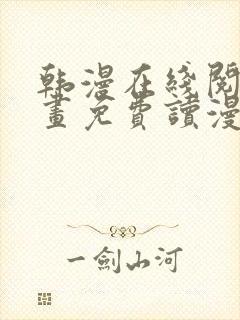 韩漫在线閱
畫免費讀漫
一劍山河